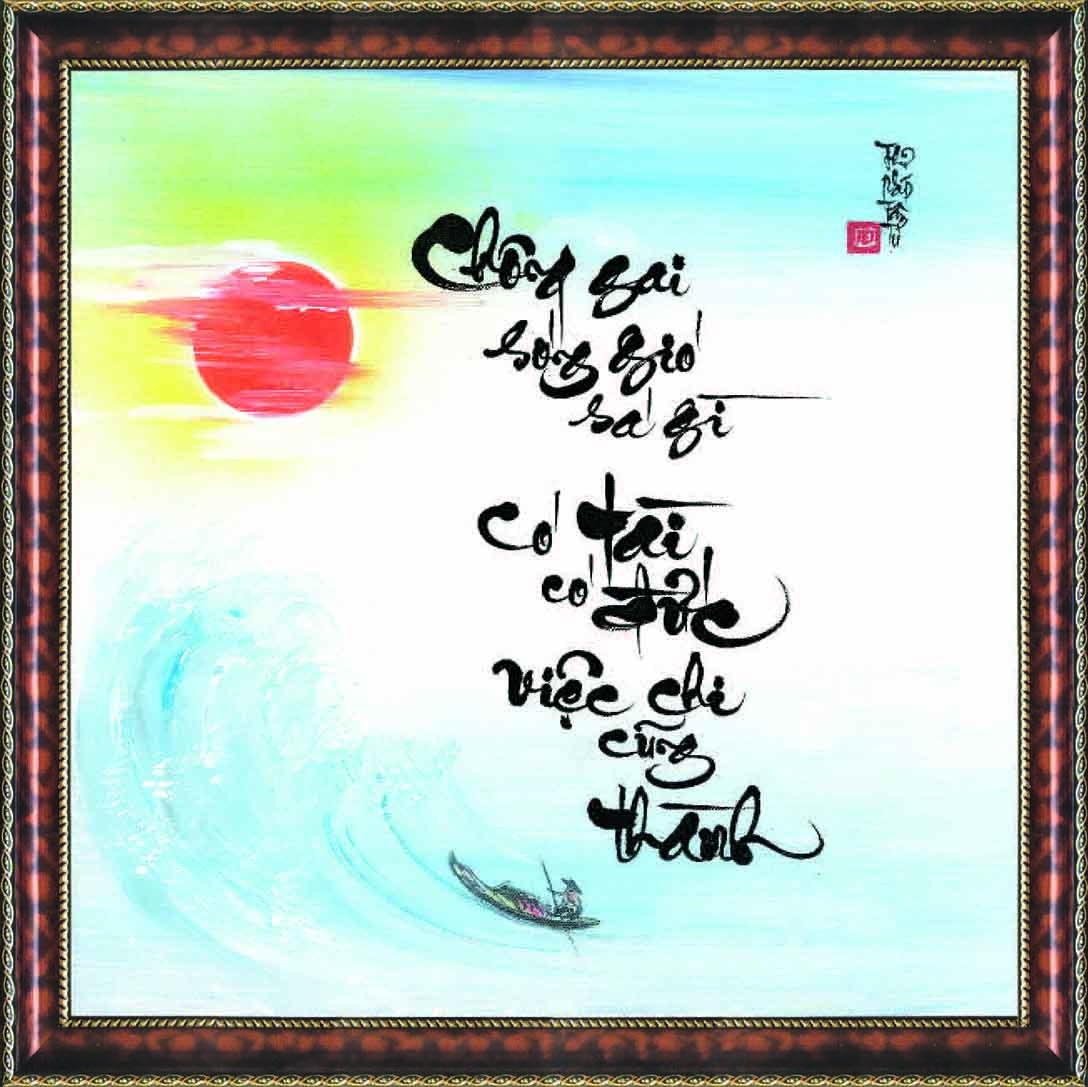 Chông gai
sóng gió
sá gì
Có tài
có đức
việc chi
cũng
thành